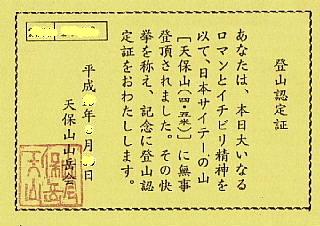 登山認定証
あなたは、本日大いなる
ロマンとイチビリ精神を
以て、日本サイテーの山
［天保山（四・五米）］に無事
登頂されました。その快
挙を称え、記念に登山認
定証をおわたしします。
平成 年 月 日
天保山山岳会
天保山岳会